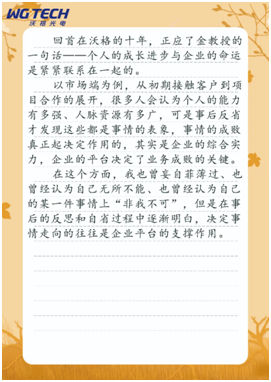 WG TECH
沃格光电
回首在沃格的十年，正应了金教授的
一句话——个人的成长进步与企业的命运
是紧紧联系在一起的。
以市场端为例，从初期接触客户到项
目合作的展开，很多人会认为个人的能力
有多强、人脉资源有多广，可是事后反省
才发现这些都是事情的表象，事情的成败
真正起决定作用的，其实是企业的综合实
力，企业的平台决定了业务成败的关键。
在这个方面，我也曾妄自菲薄过、也
曾经认为自己无所不能、也曾经认为自己
的某一件事情上“非我不可”，但是在事
后的反思和自省过程中逐渐明白，决定事
情走向的往往是企业平台的支撑作用。